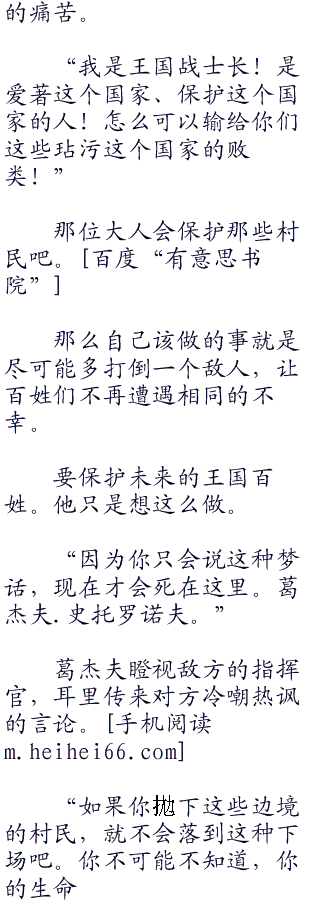 的痛苦。
“我是王国战士长！是
爱著这个国家、保护这个国
家的人！怎么可以输给你们
这些玷污这个国家的败
类！”
那位大人会保护那些村
民吧。[百度“有意思书
院”]
那么自己该做的事就是
尽可能多打倒一个敌人，让
百姓们不再遭遇相同的不
幸。
要保护未来的王国百
姓。他只是想这么做。
“因为你只会说这种梦
话，现在才会死在这里。葛
杰夫.史托罗诺夫。”
葛杰夫瞪视敌方的指挥
官，耳里传来对方冷嘲热讽
的言论。[手机阅读
m.heihei66.com]
“如果你拋下这些边境
的村民，就不会落到这种下
场吧。你不可能不知道，你
的生命